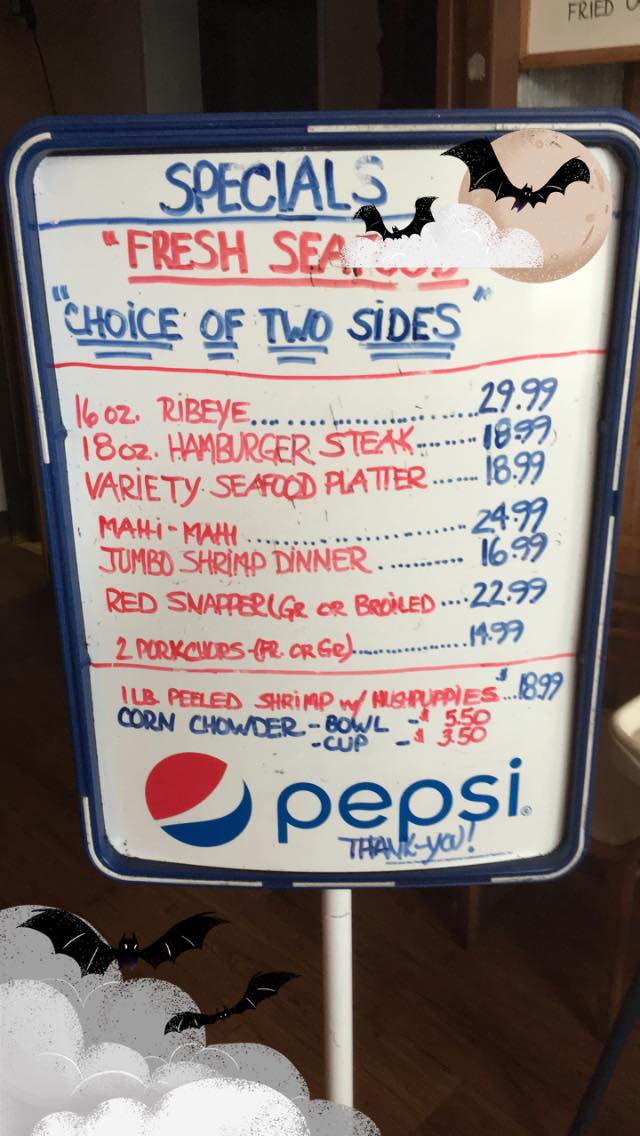 FRIED
SPECIALS
"FRESH SEAFOOD
"CHOICE OF TWO SIDES"
16 oz. RIBEYE................29.99
18 oz. HAMBURGER STEAK.......18.99
VARIETY SEAFOOD PLATTER......18.99
MAHI-MAHI ................24.99
JUMBO SHRIMP DINNER..........16.99
RED SNAPPER(GR OR BROILED....22.99
2 PORKCHOPS-(FR. OR GR)..............14.99
1 LB. PEELED SHRIMP W/ HUSHPUPPIES...$18.99
CORN CHOWDER - BOWL -$ 5.50
-CUP -$ 3.50
pepsi®
THANK-YOU!